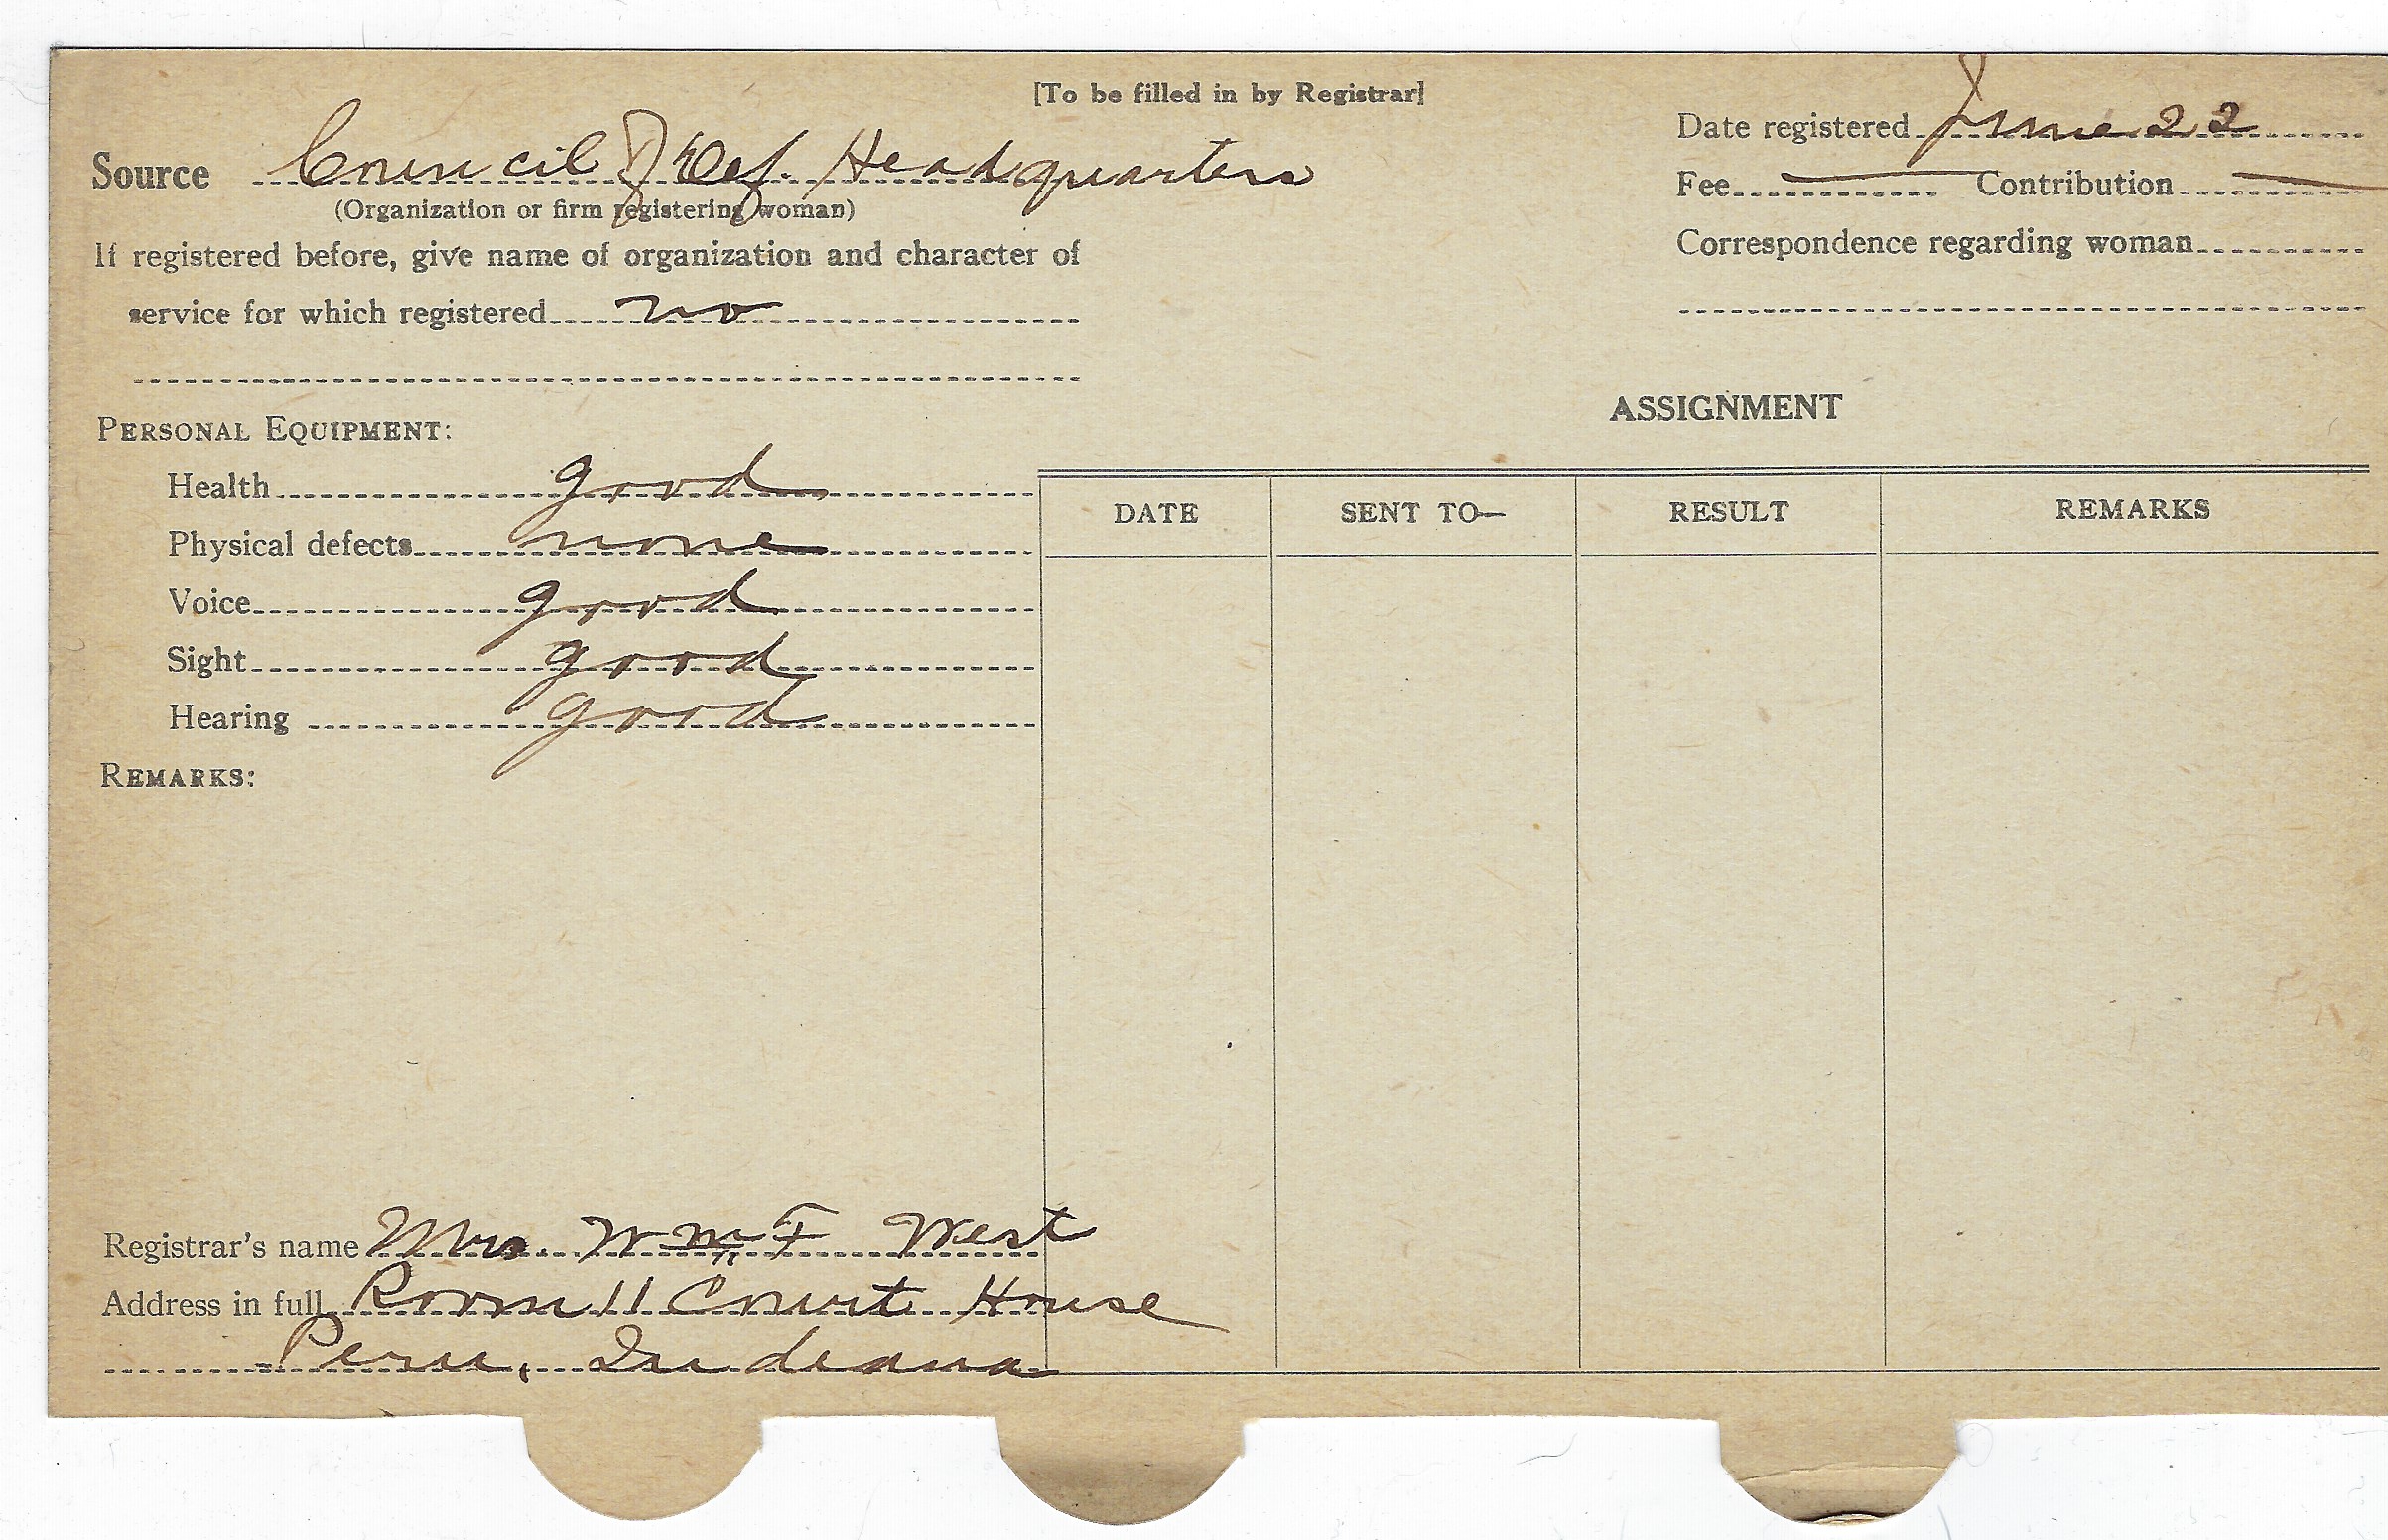 [To be filled in by Registrar]
Source Council of Def. Headquarters
(Organization or firm registering woman)
Date registered June 22
Fee Contribution
Correspondence regarding woman
If registered before, give name of organization and character of
service for which registered no
PERSONAL EQUIPMENT:
Health good
Physical defects none
Voice good
Sight good
Hearing good
REMARKS:
ASSIGNMENT
DATE SENT TO— RESULT REMARKS
Registrar's name Mrs. Wm F West
Address in full Room 11 Court House
Peru, Indiana